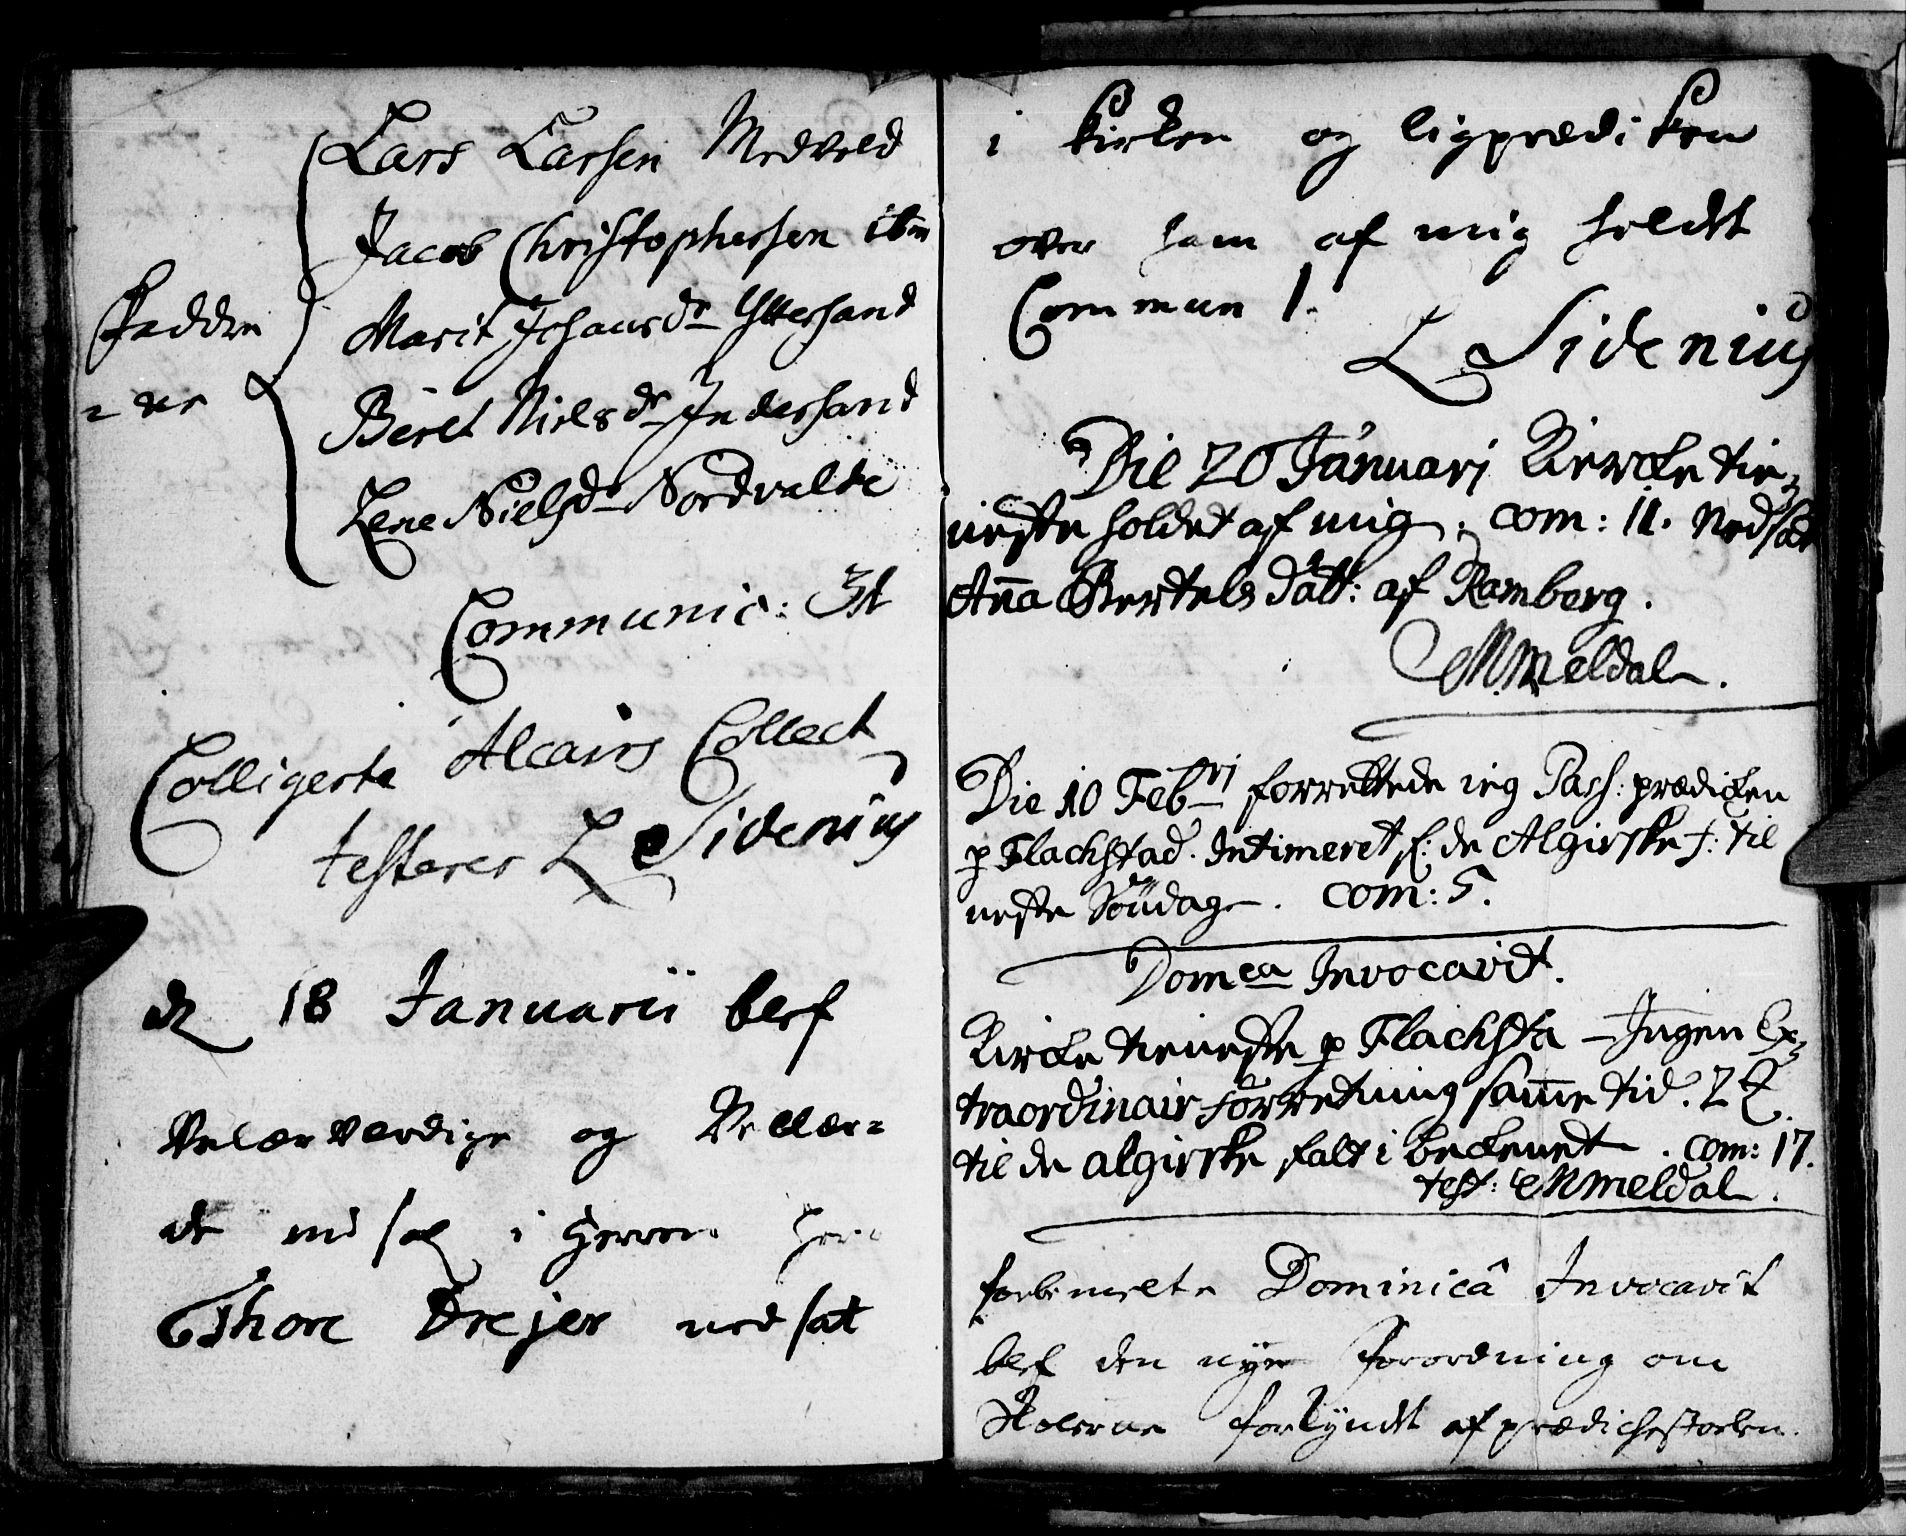 Lars Larsen Medvold
Jacob Christophersen ibm
Fadde
Marit Johansdr Yttersand
= re
Beret Nielsdr Indersand
Lene Nielsdr Nordvalde
Communic: 31
Colligerte Alcairs Collect
testerer L Sidenius
d 18 Januarii blef
Velærværdige og Vellær=
de nu sal i Herren Her
Thore Drejer nedsat
i kirken og ligprædiken
over ham af mig holdt
Commun 1.
L Sidenius
Die 20 Januarj Kircke tie=
neste holdet af mig. com: 11. Nedsat
Aña Bertels datt: af Ramberg.
MMeldal.
Die 10 Febrij forrettede ieg Pass: prædicken
p Flackstad. Intimeret f: de Algirske f: til
neste Söndag. com: 5.
Domca Invocavit.
Kircke tieneste p Flacksta – Ingen Ex=
traordinair forretning sam̄e tid. 2
til de algirske falt i beckenet. com: 17.
test: MMeldal.
forbemelte Dominicâ Invocavit
blef den nye Forordning om
Skolerne forkyndt af prædichestolen.